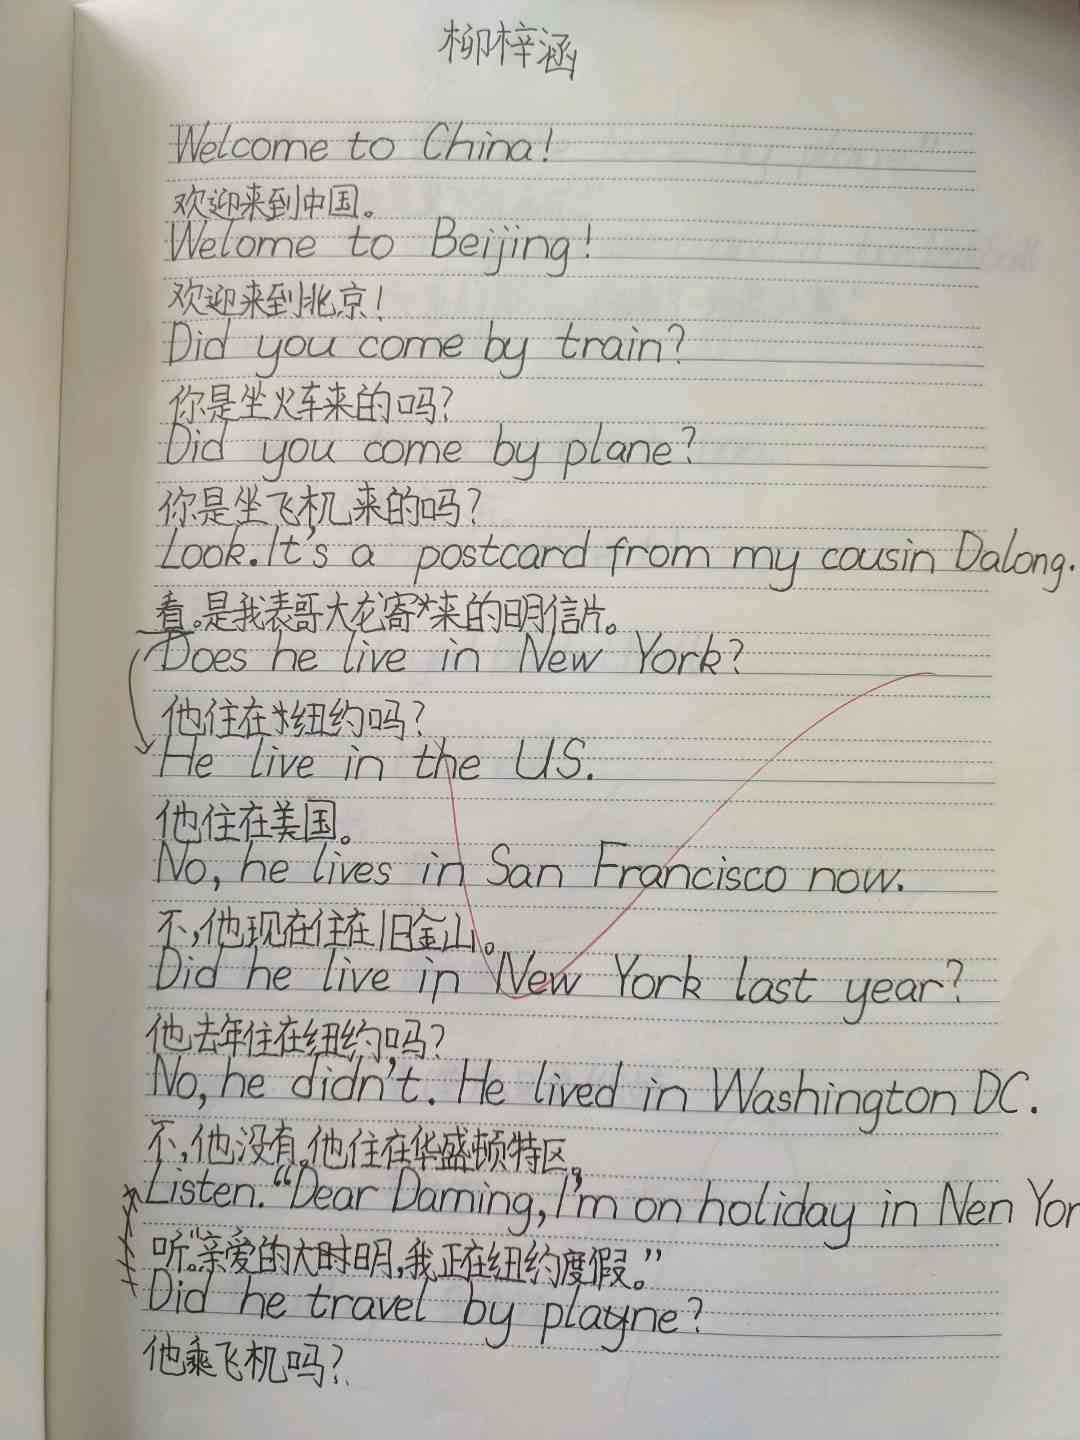 柳梓涵
Welcome to China!
欢迎来到中国。
Welome to Beijing!
欢迎来到北京!
Did you come by train?
你是坐火车来的吗?
Did you come by plane?
你是坐飞机来的吗?
Look.It's a postcard from my cousin Dalong.
看。是我表哥大龙寄来的明信片。
Does he live in New York?
他住在纽约吗?
He live in the US.
他住在美国。
No, he lives in San Francisco now.
不,他现在住在旧金山。
Did he live in New York last year?
他去年住在纽约吗?
No, he didn't. He lived in Washington DC.
不,他没有。他住在华盛顿特区。
Listen. "Dear Daming, I'm on holiday in Nen Yor
听。"亲爱的大明,我正在纽约度假。"
Did he travel by playne?
他乘飞机吗?